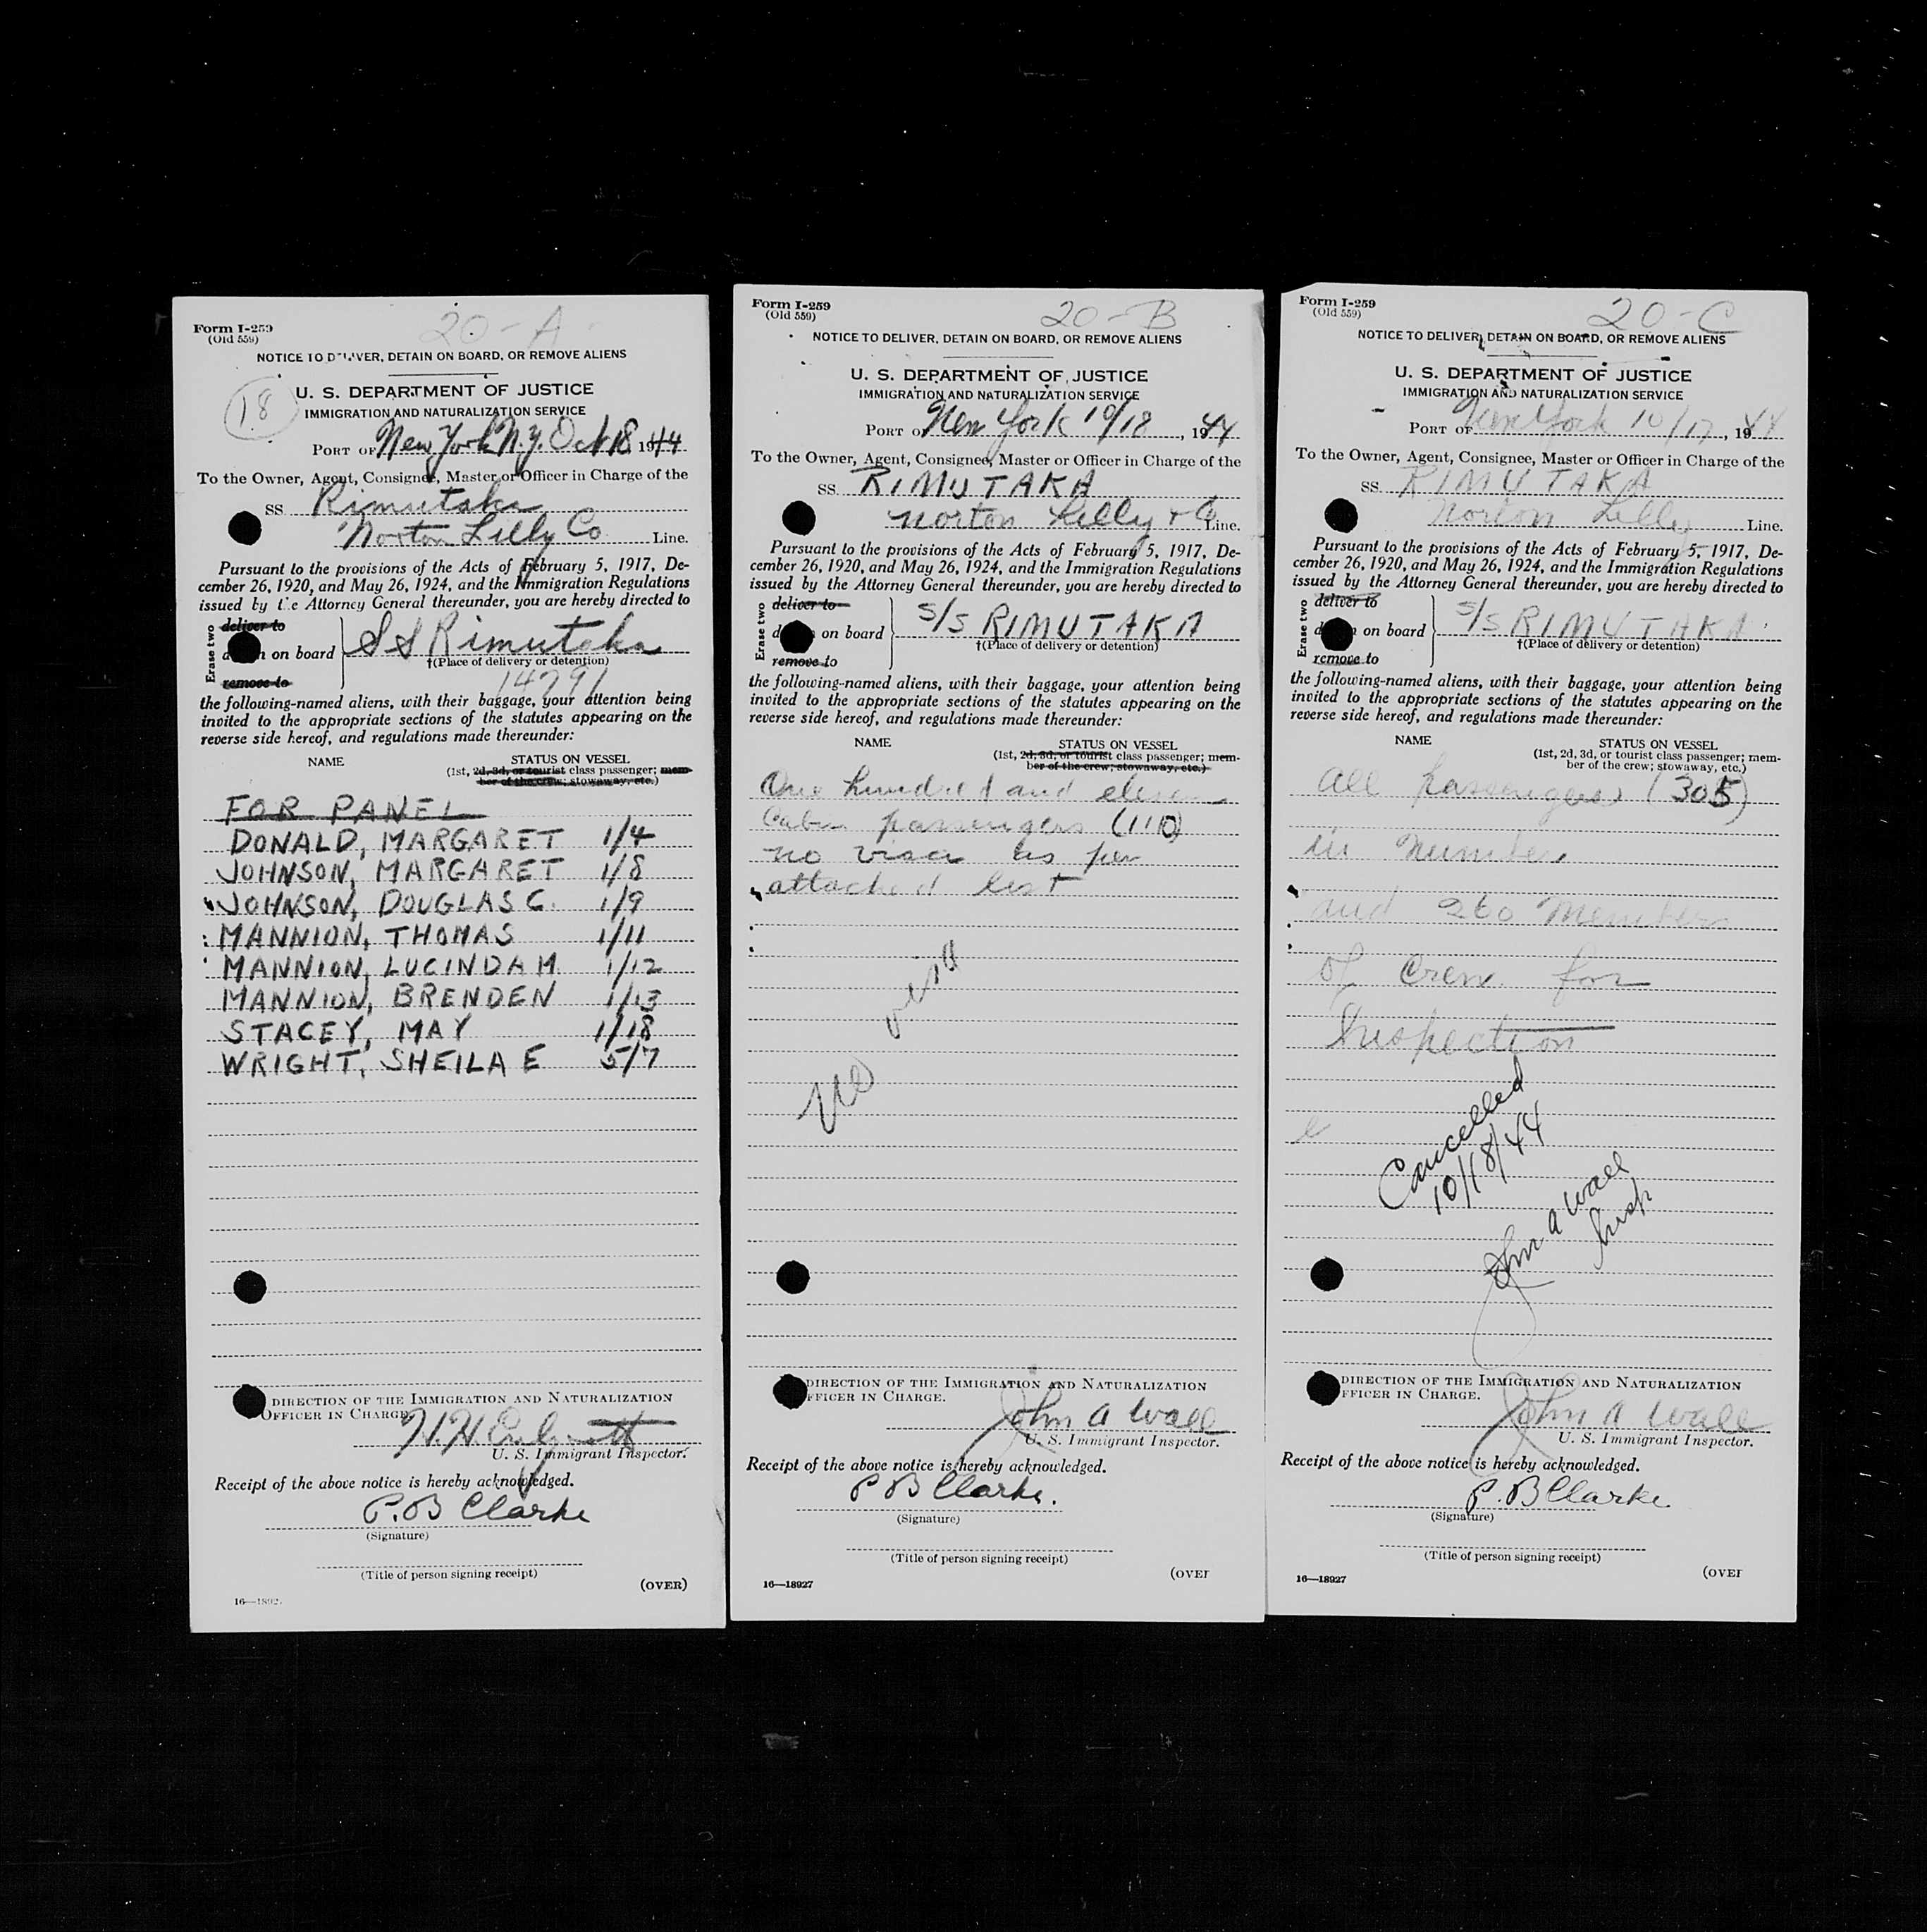 20-A
Form I-259
(Old 559)
NOTICE TO DELIVER, DETAIN ON BOARD, OR REMOVE ALIENS
18
U. S. DEPARTMENT OF JUSTICE
IMMIGRATION AND NATURALIZATION SERVICE
PORT OF New York N.Y. Oct 18 1944
To the Owner, Agent, Consignee, Master or Officer in Charge of the
SS Rimutaka
Norton Lilly Co Line.
Pursuant to the provisions of the Acts of February 5, 1917, De-
cember 26, 1920, and May 26, 1924, and the Immigration Regulations
issued by the Attorney General thereunder, you are hereby directed to
Erase two
deliver to
on board
remove to
SS Rimutaka
†(Place of delivery or detention)
14791
the following-named aliens, with their baggage, your attention being
invited to the appropriate sections of the statutes appearing on the
reverse side hereof, and regulations made thereunder:
NAME STATUS ON VESSEL
(1st, 2d, 3d, or tourist class passenger; mem-
ber of the crew; stowaway, etc.)
FOR PANEL
DONALD, MARGARET 1/4
JOHNSON, MARGARET 1/8
JOHNSON, DOUGLAS C. 1/9
MANNION, THOMAS 1/11
MANNION, LUCINDA M 1/12
MANNION, BRENDEN 1/13
STACEY, MAY 1/18
WRIGHT, SHEILA E 5/7
DIRECTION OF THE IMMIGRATION AND NATURALIZATION
OFFICER IN CHARGE.
H.H.
U. S. Immigrant Inspector.
Receipt of the above notice is hereby acknowledged.
P.B Clarke
(Signature)
(Title of person signing receipt)
(OVER)
20-B
Form I-259
(Old 559)
NOTICE TO DELIVER, DETAIN ON BOARD, OR REMOVE ALIENS
U. S. DEPARTMENT OF JUSTICE
IMMIGRATION AND NATURALIZATION SERVICE
PORT OF New York 10/18, 1944
To the Owner, Agent, Consignee, Master or Officer in Charge of the
SS. RIMUTAKA
Norton Lilly + Co Line.
Pursuant to the provisions of the Acts of February 5, 1917, De-
cember 26, 1920, and May 26, 1924, and the Immigration Regulations
issued by the Attorney General thereunder, you are hereby directed to
Erase two
deliver to
on board
remove to
S/S RIMUTAKA
†(Place of delivery or detention)
the following-named aliens, with their baggage, your attention being
invited to the appropriate sections of the statutes appearing on the
reverse side hereof, and regulations made thereunder:
NAME STATUS ON VESSEL
(1st, 2d, 3d, or tourist class passenger; mem-
ber of the crew; stowaway, etc.)
One hundred and eleven
Cabin passengers (110)
no visa as per
attached list
no visa
DIRECTION OF THE IMMIGRATION AND NATURALIZATION
OFFICER IN CHARGE.
John A Wall
U. S. Immigrant Inspector.
Receipt of the above notice is hereby acknowledged.
P B Clarke.
(Signature)
(Title of person signing receipt)
(OVER
16—18927
20-C
Form I-259
(Old 559)
NOTICE TO DELIVER, DETAIN ON BOARD, OR REMOVE ALIENS
U. S. DEPARTMENT OF JUSTICE
IMMIGRATION AND NATURALIZATION SERVICE
PORT OF New York 10/17, 1944
To the Owner, Agent, Consignee, Master or Officer in Charge of the
SS. RIMUTAKA
Norton Lilly Line.
Pursuant to the provisions of the Acts of February 5, 1917, De-
cember 26, 1920, and May 26, 1924, and the Immigration Regulations
issued by the Attorney General thereunder, you are hereby directed to
Erase two
deliver to
on board
remove to
S/S RIMUTAKA
†(Place of delivery or detention)
the following-named aliens, with their baggage, your attention being
invited to the appropriate sections of the statutes appearing on the
reverse side hereof, and regulations made thereunder:
NAME STATUS ON VESSEL
(1st, 2d, 3d, or tourist class passenger; mem-
ber of the crew; stowaway, etc.)
All passengers (305)
in number
and 260 members
of Crew for
Inspection
Cancelled
10/18/44
John A Wall
Insp
DIRECTION OF THE IMMIGRATION AND NATURALIZATION
OFFICER IN CHARGE.
John A Wall
U. S. Immigrant Inspector.
Receipt of the above notice is hereby acknowledged.
P. B Clarke
(Signature)
(Title of person signing receipt)
(OVER
16—18927